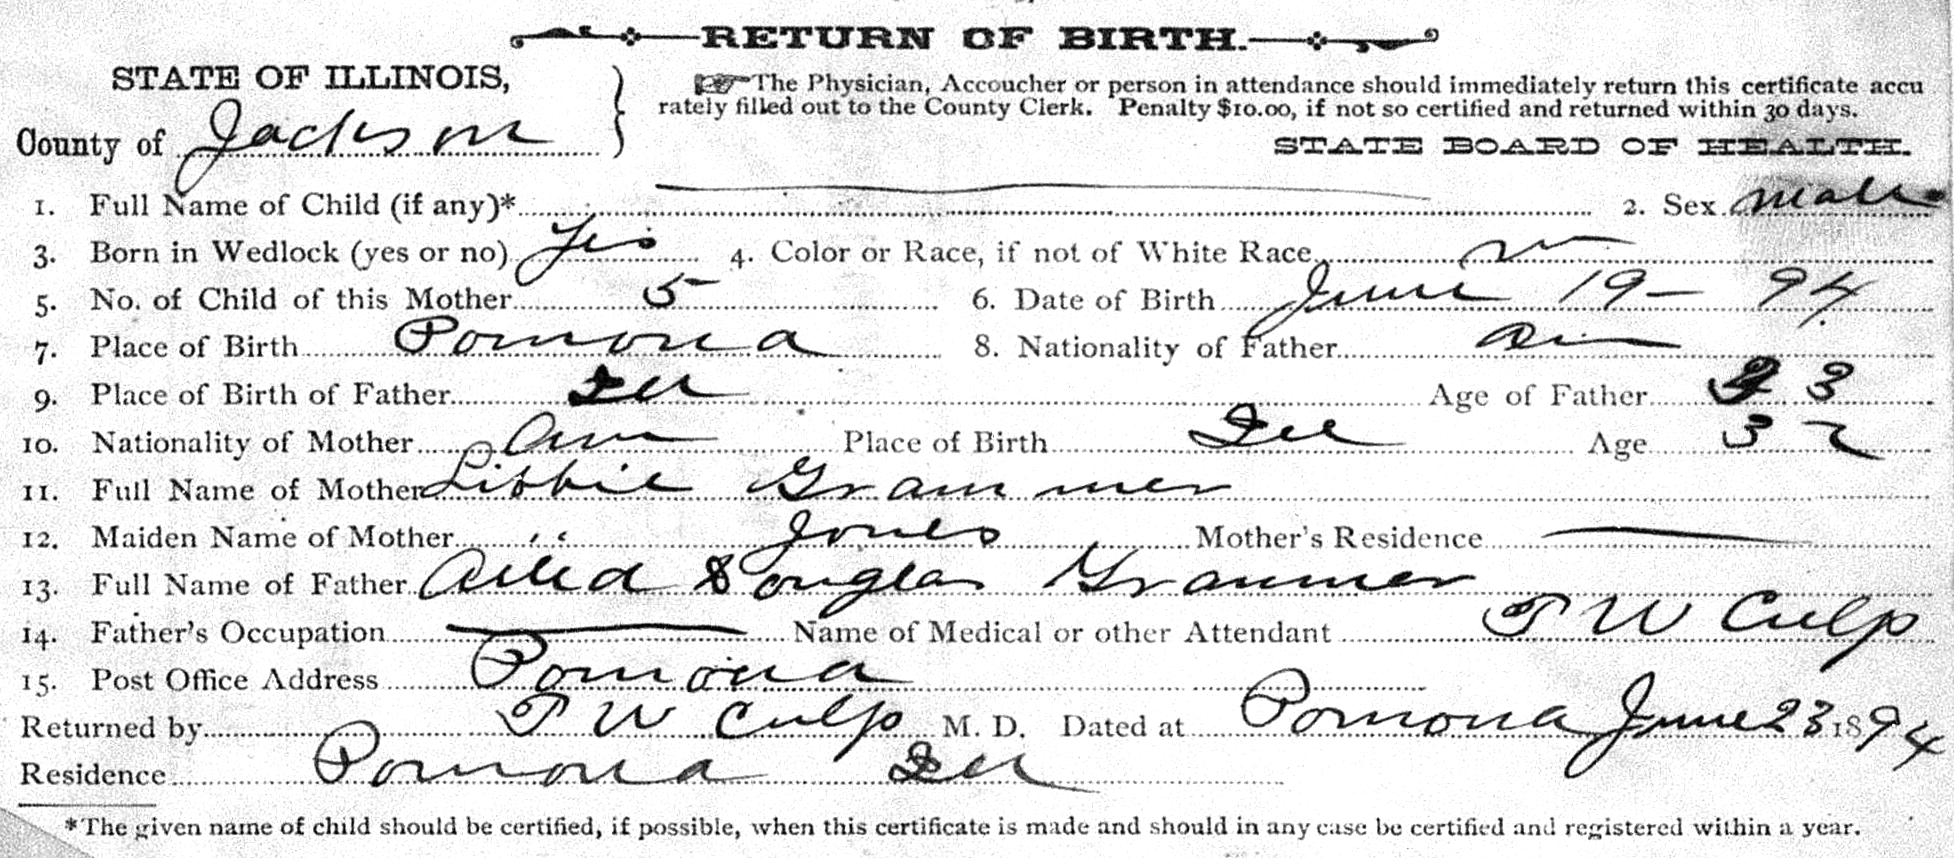 RETURN OF BIRTH.
STATE OF ILLINOIS,
County of Jackson
The Physician, Accoucher or person in attendance should immediately return this certificate accu
rately filled out to the County Clerk. Penalty $10.00, if not so certified and returned within 30 days.
STATE BOARD OF HEALTH.
1. Full Name of Child (if any)* 2. Sex Male
3. Born in Wedlock (yes or no) Yes 4. Color or Race, if not of White Race
5. No. of Child of this Mother 5 6. Date of Birth June 19 - 94
7. Place of Birth Pomona 8. Nationality of Father Am
9. Place of Birth of Father Ill Age of Father 3
10. Nationality of Mother Am Place of Birth Ill Age 32
11. Full Name of Mother Libbie Grammer
12. Maiden Name of Mother " Jones Mother's Residence
13. Full Name of Father Douglas Grammer
14. Father's Occupation Name of Medical or other Attendant T W Culp
15. Post Office Address Pomona
Returned by T W Culp M. D. Dated at Pomona June 23 1894
Residence Pomona Ill
*The given name of child should be certified, if possible, when this certificate is made and should in any case be certified and registered within a year.